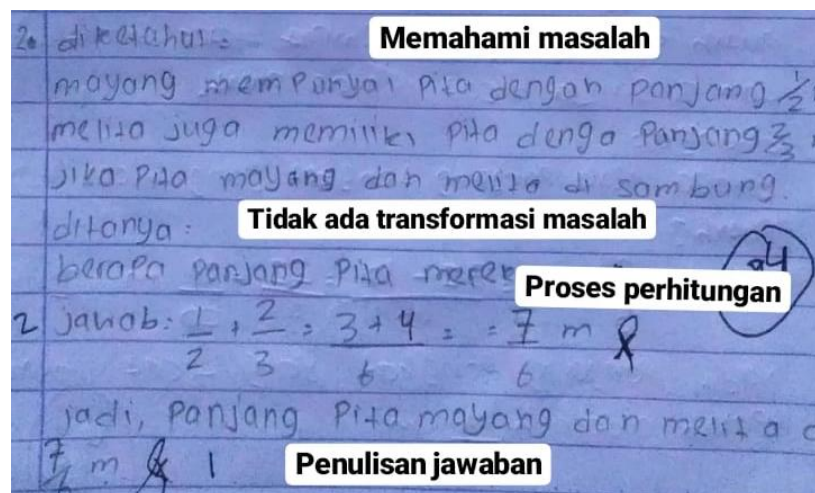 2. diketahui: Memahami masalah
mayang mempunyai Pita dengan panjang 1/2
melita juga memiliki pita denga Panjang 2/3
jika Pita mayang dan melita di sambung.
ditanya: Tidak ada transformasi masalah
berapa panjang Pita Proses perhitungan 4
2 jawab: 1/2 + 2/3 = 3+4/6 = = 7/6 m
jadi, panjang Pita mayang dan melita
m 1 Penulisan jawaban